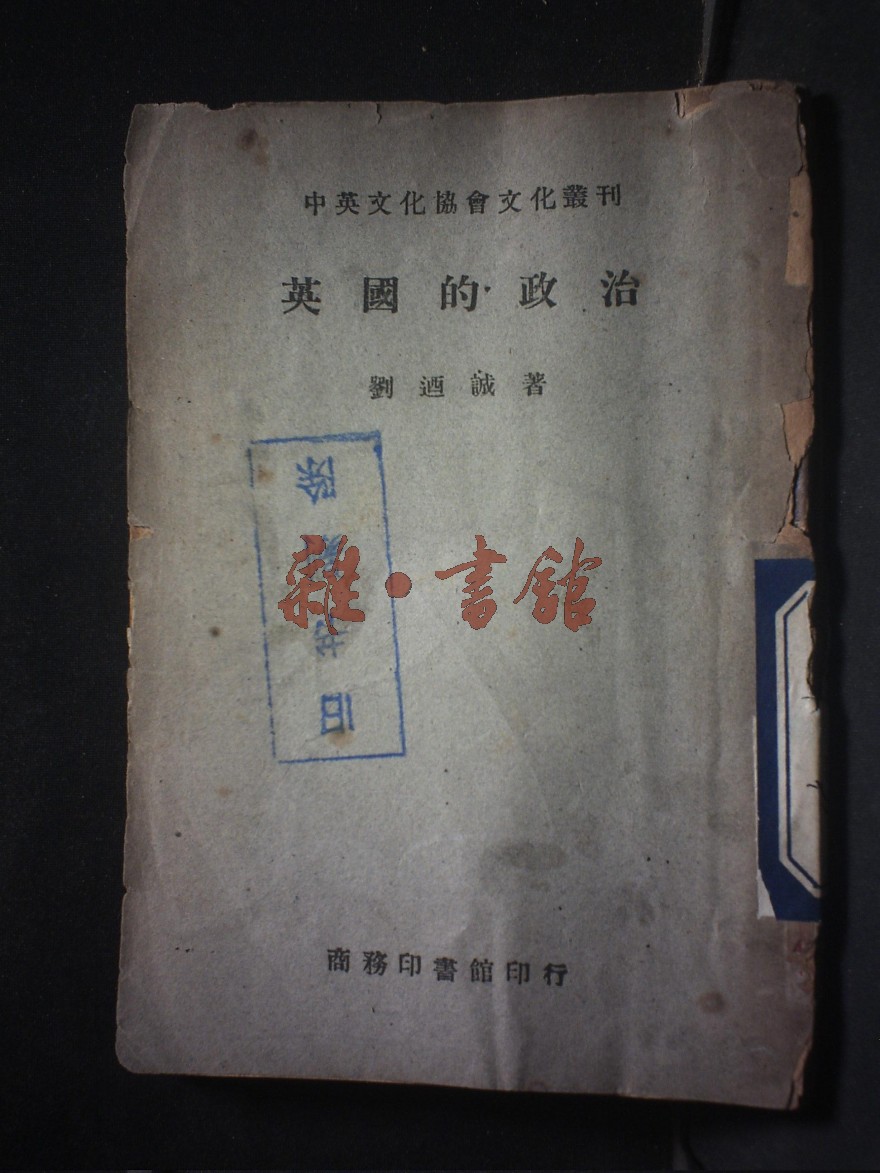 中英文化協會文化叢刊
英國的政治
劉迺誠著
除
雜·書館
旧
商務印書館印行